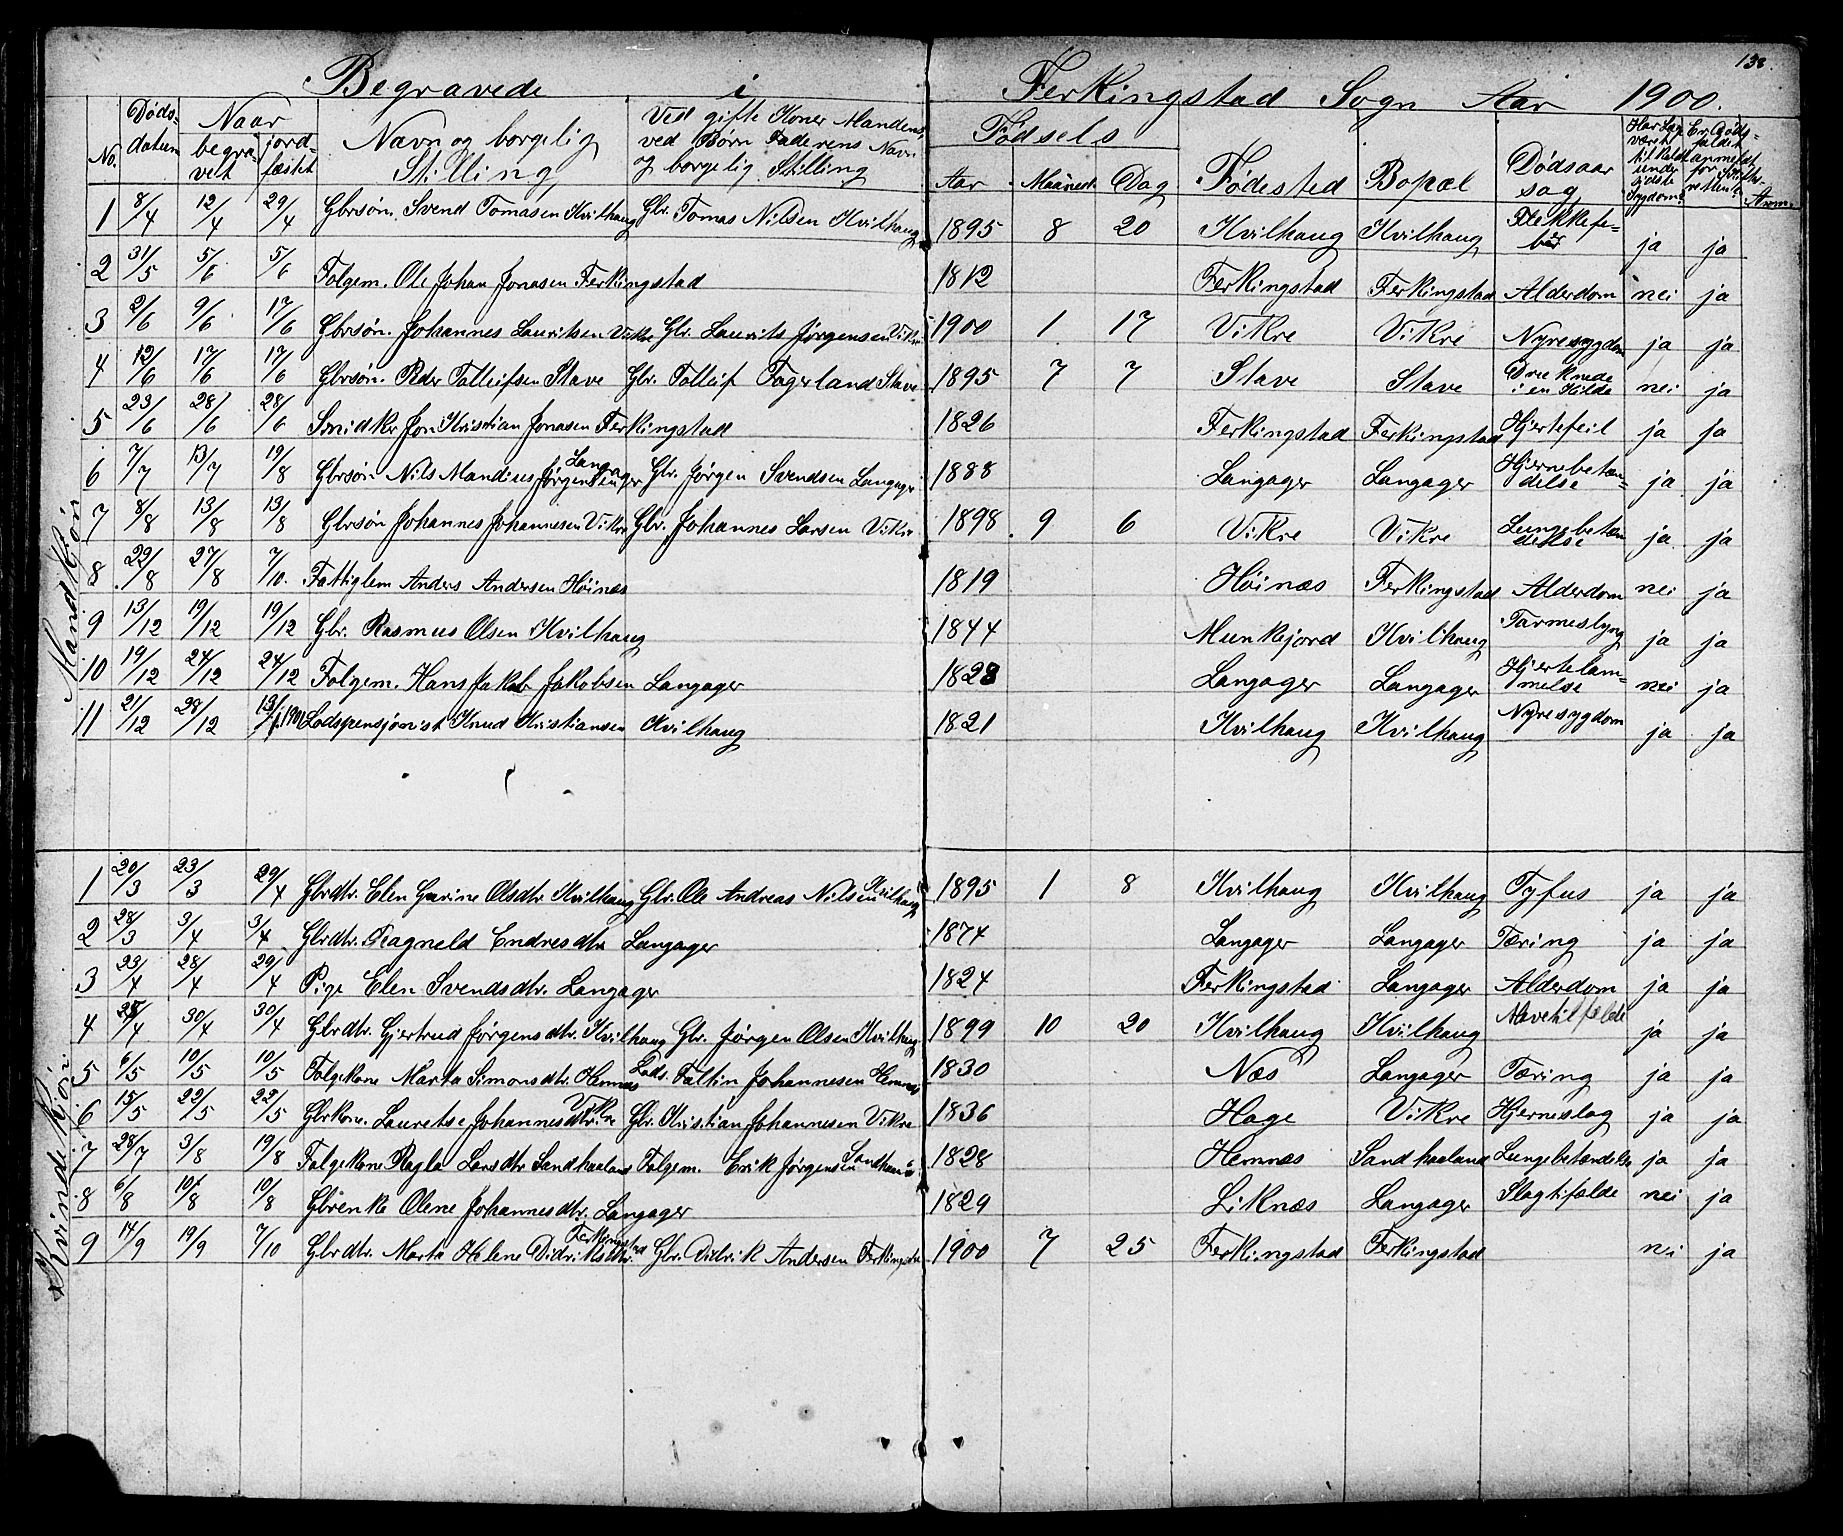 138.
Begravede i Ferkingstad Sogn Aar 1900.
No. Dødsdatum Naar begravet jordfæstet Navn og borgelig Stilling Ved gifte Koner Mandens, ved Børn Faderens Navn og borgelig Stilling Fødsels Aar Maaned Dag Fødested Bopæl Dødsaarsag Har Læge været tilkaldt under sidste Sygdom? Er Dødsfaldet anmeldt for Skifteretten? Anm.
Mandkjøn
1 8/4 12/4 29/4 Gbrsøn. Svend Tomasen Kvilhaug Gbr. Tomas Nilsen Kvilhaug 1895 8 20 Kvilhaug Kvilhaug Flekkefeber ja ja
2 31/5 5/6 5/6 Folgem. Ole Johan Jonasen Ferkingstad 1812 Ferkingstad Ferkingstad Alderdom nei ja
3 2/6 9/6 17/6 Gbrsøn. Johannes Lauritsen Vikre Gbr. Laurits Jørgensen Vikre 1900 1 17 Vikre Vikre Nyresygdom ja ja
4 12/6 17/6 17/6 Gbrsøn. Peder Tolleifsen Stave Gbr. Tolleif Fagerland Stave 1895 7 7 Stave Stave Druknede i en Kilde nei ja
5 23/6 28/6 28/6 Smidker Jon Kristian Jonasen Ferkingstad 1826 Ferkingstad Ferkingstad Hjertefeil ja ja
6 7/7 13/7 19/8 Gbrsøn Nils Mandius Jørgensen Langager Gbr. Jørgen Svendsen Langager 1888 Langager Langager Hjernebetændelse ja ja
7 8/8 13/8 13/8 Gbrsøn Johannes Johannesen Vikre Gbr. Johannes Larsen Vikre 1898 9 6 Vikre Vikre Lungebetændelse ja ja
8 22/8 27/8 7/10. Fattiglem Anders Andersen Høinæs 1819 Høinæs Ferkingstad Alderdom nei ja
9 13/12 19/12 19/12 Gbr. Rasmus Olsen Kvilhaug 1844 Munkejord Kvilhaug Tarmeslyng ja ja
10 19/12 24/12 24/12 Folgem. Hans Jakob Jakobsen Langager 1823 Langager Langager Hjertelammelse nei ja
11 21/12 28/12 13/1 1901 Lodspensjonist Knud Kristiansen Kvilhaug 1821 Kvilhaug Kvilhaug Nyresygdom ja ja
Kvindekjøn
1 20/3 23/3 29/4 Gbrdtr. Elen Gurine Olsdtr. Kvilhaug Gbr. Ole Andreas Nilsen Kvilhaug 1895 1 8 Kvilhaug Kvilhaug Tyfus ja ja
2 28/3 3/4 3/4 Gbrdtr. Ragneld Endresdtr Langager 1874 Langager Langager Tæring ja ja
3 23/4 28/4 29/4 Pige Elen Svendsdtr. Langager 1824 Ferkingstad Langager Alderdom ja ja
4 28/4 30/4 30/4 Gbrdtr. Gjertrud Jørgensdtr. Kvilhaug Gbr. Jørgen Olsen Kvilhaug 1899 10 20 Kvilhaug Kvilhaug Mavetilfælde ja ja
5 6/5 10/5 10/5 Folgekone Marta Simonsdtr. Hemnæs Lods. Faltin Johannesen Hemnæs 1830 Næs Langager Tæring ja ja
6 15/5 22/5 22/5 Gbrkone. Lauretse Johannesdtr. Vikre Gbr. Kristian Johannesen Vikre 1836 Hage Vikre Hjerneslag ja ja
7 28/7 3/8 19/8 Folgekone Ragla Larsdtr Sandhaaland Folgem. Erik Jørgensen 1828 Hemnæs Sandhaaland Lungebetændelse ja ja
8 6/8 10/8 10/8 Gbrenke Olene Johannesdtr. Langager 1829 Liknæs Langager Slagtifælde nei ja
9 14/9 19/9 7/10 Gbrdtr. Marta Helene Didriksdtr. Ferkingstad Gbr. Didrik Andersen Ferkingstad 1900 7 25 Ferkingstad Ferkingstad nei ja